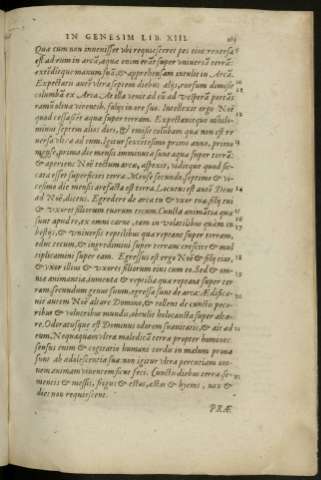 IN GENESIM LIB. XIII.
Quæ cum non inuenisset vbi requiesceret pes eius reuersa
est ad eum in arcã, aquæ enim erãt super vniuersã terrã:
extẽditque manum suã, & apprehensam intulit in Arcã.
Expectatis autẽ vltra septem diebus alijs, rursum dimisit
columbã ex Arca. At illa venit ad eũ ad vesperã portãs
ramũ oliuæ virentib. folijs in ore suo. Intellexit ergo Noë
quod cessassẽt aquæ super terram. Expectauitque nihilo-
minus septem alios dies, & emisit columbam quæ non est re
uersa vltra ad eum. Igitur sexcētesimo primo anno, primo
mense, prima die mensis imminutæ sunt aquæ super terrã,
& aperiens Noë tectum arcæ, aspexit, viditque quod sic-
cata esset superficies terræ. Mense secundo, septimo & vi-
cesimo die mensis arefacta est terra. Locutus est autẽ Deus
ad Noë, dicens. Egredere de arca tu & vxor tua, filij tui
& vxores filiorum tuorum tecum. Cuncta animãtia quæ
sunt apud te, ex omni carne, tam in volatilibus quàm in
bestijs, & vniuersis reptilibus quæ reptant super terram,
educ tecum, & ingredimini super terram: crescite & mul
tiplicamini super eam. Egressus est ergo Noë & filij eius,
& vxor illius & vxores filiorum eius cum eo. Sed & om-
nia animantia, iumenta & reptilia quæ reptant super ter
ram, secundum genus suum, egressa sunt de arca. Ædifica-
uit autem Noë altare Domino, & tollens de cunctis peco-
ribus & volucribus mundis, obtulit holocausta super alta-
re. Odoratusque est Dominus odorem suauitatis, & ait ad
eum, Nequaquam vltra maledicã terræ propter homines:
sensus enim & cogitatio humani cordis in malum prona
sunt ab adolescentia sua: non igitur vltra percutiam om-
nem animam viuentem sicut feci. Cunctis diebus terræ se-
mentis & messis, frigus & æstus, æstas & hyems, nox &
dies non requiescent.
PRÆ